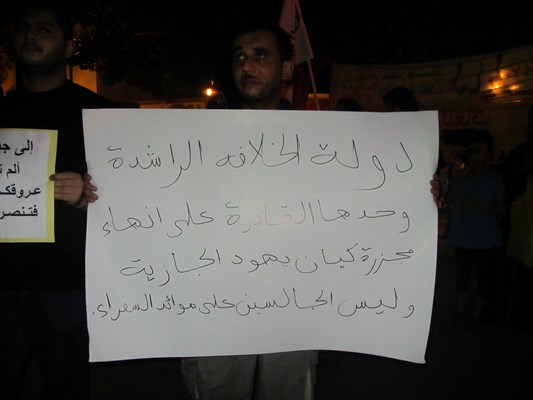 دولة الخلافه الراشدة
وحدها القادرة على انهاء
مجزرة كيان يهود الجارية
وليس الجالسين على موائد السفراء.
إلى
ألم
عروقك
فتنصر